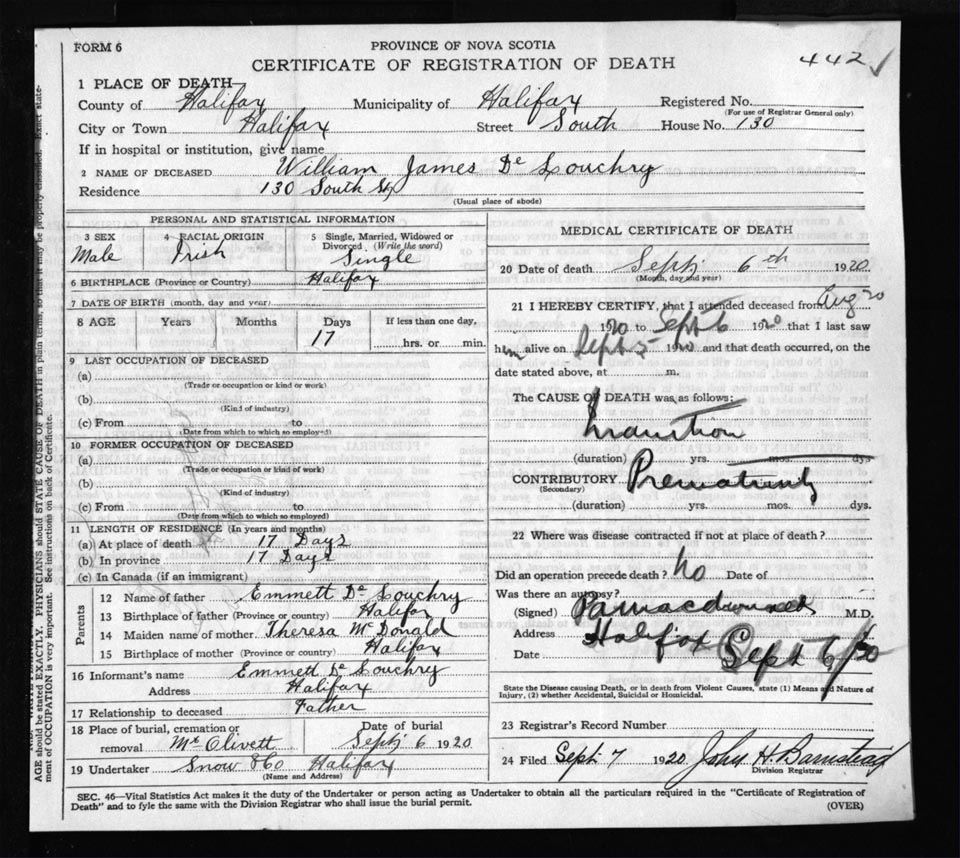 FORM 6
PROVINCE OF NOVA SCOTIA
CERTIFICATE OF REGISTRATION OF DEATH
442 ✓
1 PLACE OF DEATH
County of Halifax Municipality of Halifax Registered No.
(For use of Registrar General only)
City or Town Halifax Street South House No. 130
If in hospital or institution, give name
2 NAME OF DECEASED William James De Louchry
Residence 130 South St
(Usual place of abode)
PERSONAL AND STATISTICAL INFORMATION
3 SEX 4 RACIAL ORIGIN 5 Single, Married, Widowed or Divorced (Write the word)
Male Irish Single
6 BIRTHPLACE (Province or Country) Halifax
7 DATE OF BIRTH (month, day and year)
8 AGE Years Months Days If less than one day,
17 hrs. or min.
9 LAST OCCUPATION OF DECEASED
(a)
(Trade or occupation or kind or work)
(b)
(Kind of industry)
(c) From to
(Date from which to which so employed)
10 FORMER OCCUPATION OF DECEASED
(a)
(Trade or occupation or kind of work)
(b)
(Kind of industry)
(c) From to
(Date from which to which so employed)
11 LENGTH OF RESIDENCE (In years and months)
(a) At place of death 17 Days
(b) In province 17 Days
(c) In Canada (if an immigrant)
Parents
12 Name of father Emmett De Louchry
13 Birthplace of father (Province or country) Halifax
14 Maiden name of mother Theresa McDonald
15 Birthplace of mother (Province or country) Halifax
16 Informant's name Emmett De Louchry
Address Halifax
17 Relationship to deceased Father
18 Place of burial, cremation or removal Mt Olivett Date of burial Sept 6 1920
19 Undertaker Snow & Co Halifax
(Name and Address)
MEDICAL CERTIFICATE OF DEATH
20 Date of death Sept 6th 1920
(Month, day and year)
21 I HEREBY CERTIFY, that I attended deceased from Aug 20
1920 to Sept 6 1920 that I last saw
him alive on Sept 5 1920 and that death occurred, on the
date stated above, at m.
The CAUSE OF DEATH was as follows:
Inanition
(duration) yrs. mos. dys.
CONTRIBUTORY Prematurity
(Secondary)
(duration) yrs. mos. dys.
22 Where was disease contracted if not at place of death?
Did an operation precede death? No Date of
Was there an autopsy?
(Signed) M.D.
Address Halifax
Date Sept 6/20
State the Disease causing Death, or in death from Violent Causes, state (1) Means and Nature of
Injury, (2) whether Accidental, Suicidal or Homicidal.
23 Registrar's Record Number
24 Filed Sept 7 1920 John H. Barnstead
Division Registrar
SEC. 46—Vital Statistics Act makes it the duty of the Undertaker or person acting as Undertaker to obtain all the particulars required in the "Certificate of Registration of
Death" and to fyle the same with the Division Registrar who shall issue the burial permit.
(OVER)
AGE should be stated EXACTLY. PHYSICIANS should STATE CAUSE OF DEATH in plain terms, so that it may be properly classified. Exact state-
ment of OCCUPATION is very important. See instructions on back of Certificate.